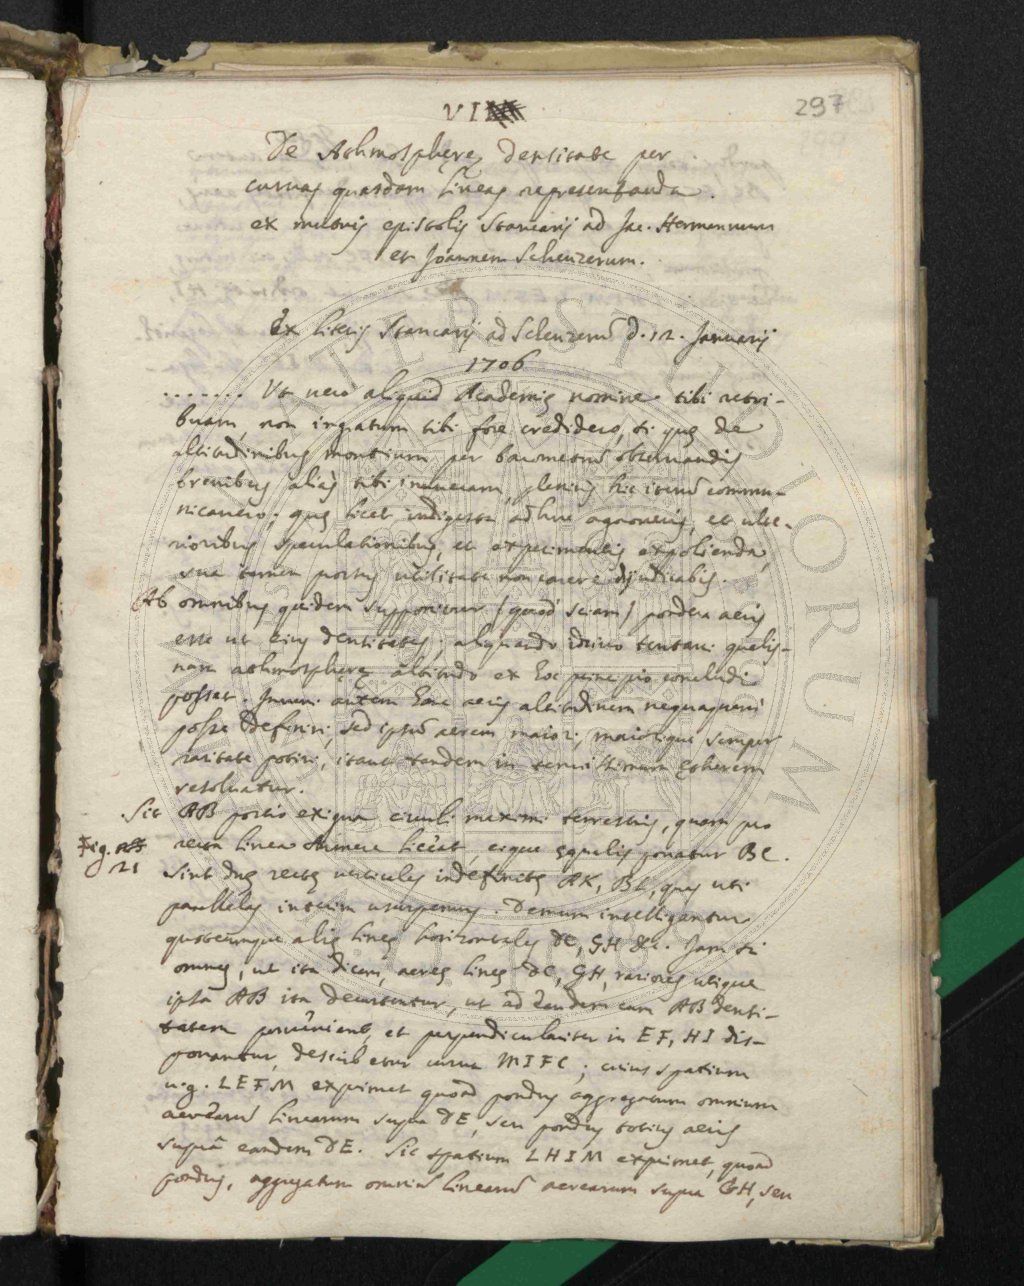 VI
297
De Athmosphęrę densitate per
curvas quasdam lineas repręsentanda.
ex mutuis epistolis Stancarij ad Jac. Hermannum
et Joannem Scheuzerum.
Ex literis Stancarij ad Scheuzerū d. 12. Januarij
1706
....... Ut vero aliquid Academię nomine tibi retri-
buam, non ingratum tibi fore crediderō, si quę de
altitudinibus montium per barometrū observandis
brevibus alias tibi innueram, plenius hic iterū commu-
nicavero; quę licet indigesta adhuc agnoveris, et ulte-
rioribus speculationibus, et experimentis expolienda,
sua tamen portus utilitate non carere dijudicabis.
Ab omnibus quidem supponitur (quod sciam) pondera aeris
esse ut eius densitates; aliquando idcirco tentavi quęlis-
nam athmosphęrę altitudo ex hoc principio concludi
posset. Inveni autem hanc aeris altitudinem nequaquam
posse definiri, sed ipsū aerem maiori, maiorique semper
raritate potiri, itaut tandem in tenuissimum ętherem
resolvatur.
Sit AB portio exigua circuli maximi terrestris, quam pro
Fig. 21
recta linea sumere liceat, eique ęqualis ponatur BC.
Sint duę rectę verticales indefinitę AK, BL, quas uti
parallelas interim usurpemus. Demum intelligantur
quotcumque alię linęę horizontales DE, GH &c. Jam si
omnes, ut ita dicam, aereę linęę DE, GH, rariores utique
ipsa AB ita decurtentur, ut ad eandem cum AB densi-
tatem perveniant, et perpendiculariter in EF, HI dis-
ponantur, describetur curva MIFC; cuius spatium
v.g. LEFM exprimet quoad pondus aggregatum omnium
aerearū linearum supra DE, seu pondus totius aeris
supra eandem DE. Sic spatium LHIM exprimet, quoad
pondus, aggregatum omniū linearū aerearum supra GH, seu